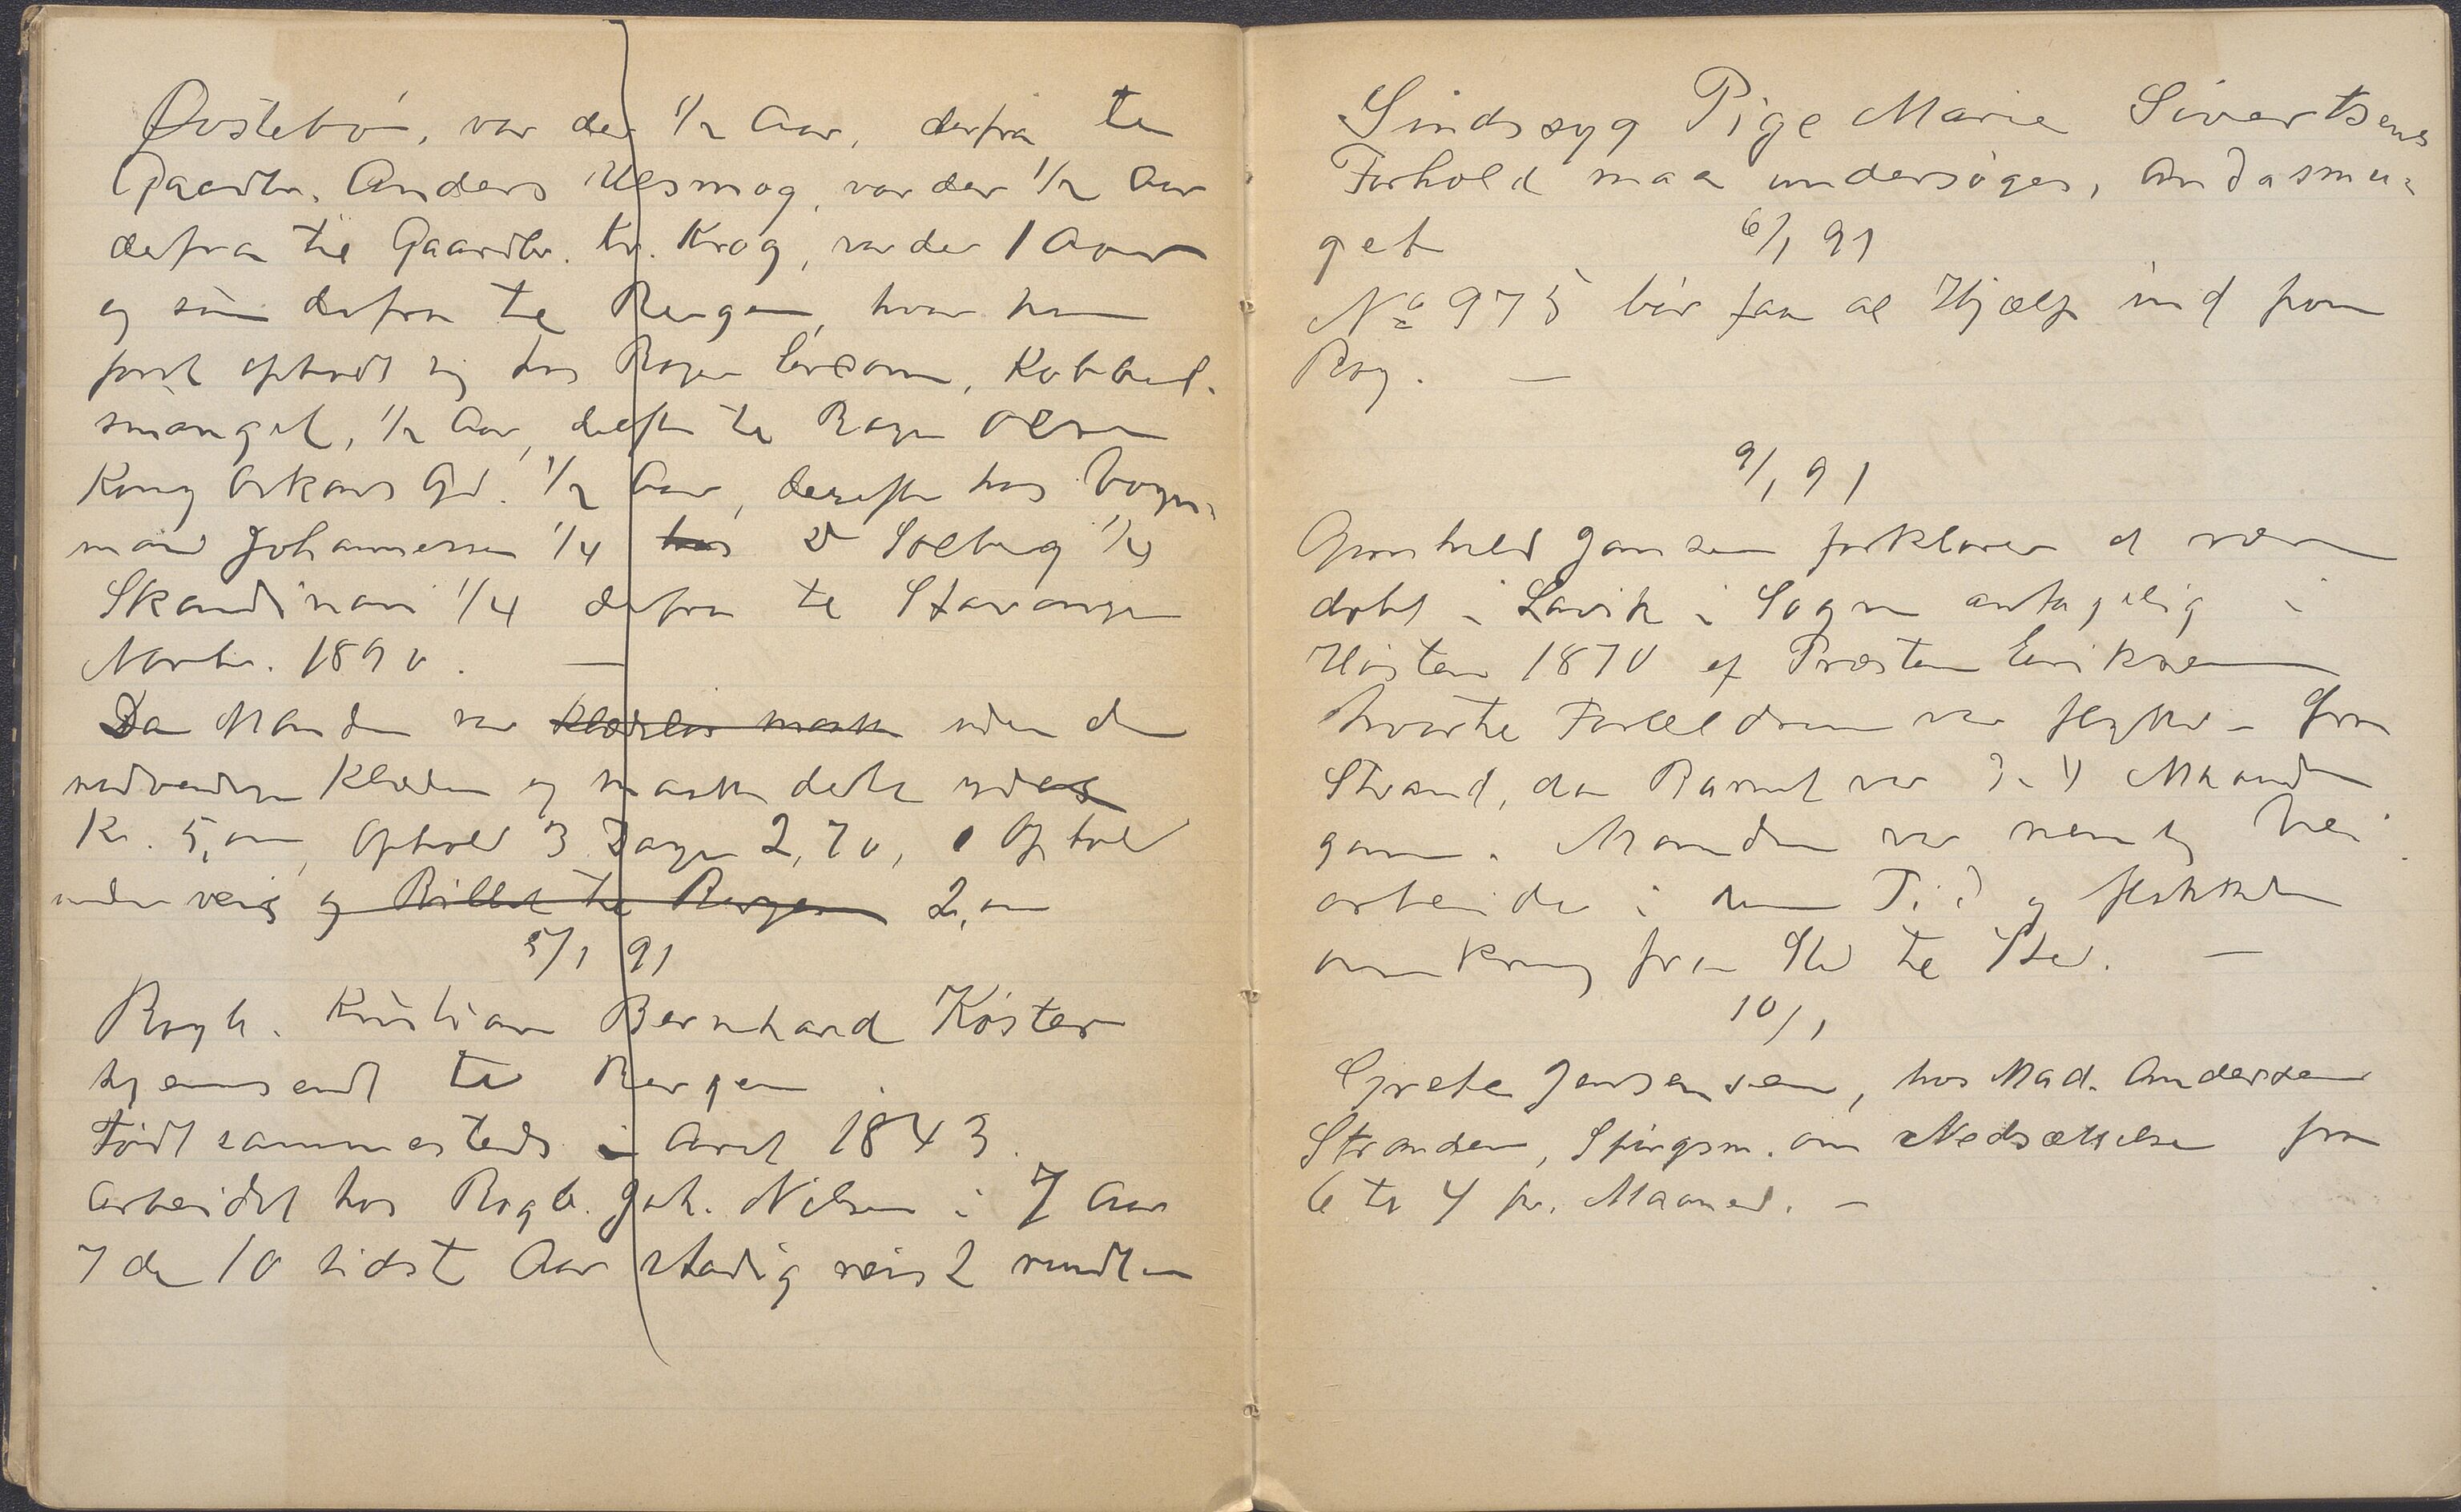 Østebø, var der 1/2 Aar, derfra til
Gaardbr. Anders Ulsmog, var der 1/2 Aar
derfra til Gaardbr. Kr. Krog, var der 1 Aar
og saa derfra til Bergen, hvor han
først opholdt sig hos Bager Kobbel-
smauget, 1/2 Aar, derefter til Bager Olsen
Kong Oskars Gd. 1/2 Aar, derefter hos Vogn-
mand Johannessen 1/4 hos D Solberg 1/4
Skandinavi 1/4 derfra til Stavanger
Novbr. 1890. —
Da Manden var klædeløs maatte uden de
nødvendige Klæder og maatte dette ydes
Kr. 5,00, Ophold 3 Dage 2,70, Ophold
underveis og Billet til Bergen 2,00
5/1 91
Bogb. Kristian Bernhard Köster
hjemsendt til Bergen.
Født sammesteds i Aaret 1843.
Arbeidet hos Bogb. Joh. Nilsen i 7 Aar
7 de 10 sidst Aar stadig reist rundt om
Sindssyg Pige Marie Sivertsens
Forhold maa undersøges, Andasmu-
get 6/1 91
No 975 bør faa al Hjælp ind fra
Reg. —
9/1 91
Gunhild Jansen forklarer at være
døbt i Lavik i Sogn antagelig i
Høsten 1870 af Præsten Eriksen
hvortil Forældrene var flyttet fra
Strand, da Barnet var 3 à 4 Maaneder
gam. Manden var nemlig Vei
arbeider i den Tid og flakkede
omkring fra Sted til Sted. —
10/1
Grete Jensensen, hos Mad. Andersen
Stranden, Spørgsm. om Nedsættelse fra
6 til 4 pr. Maaned. —